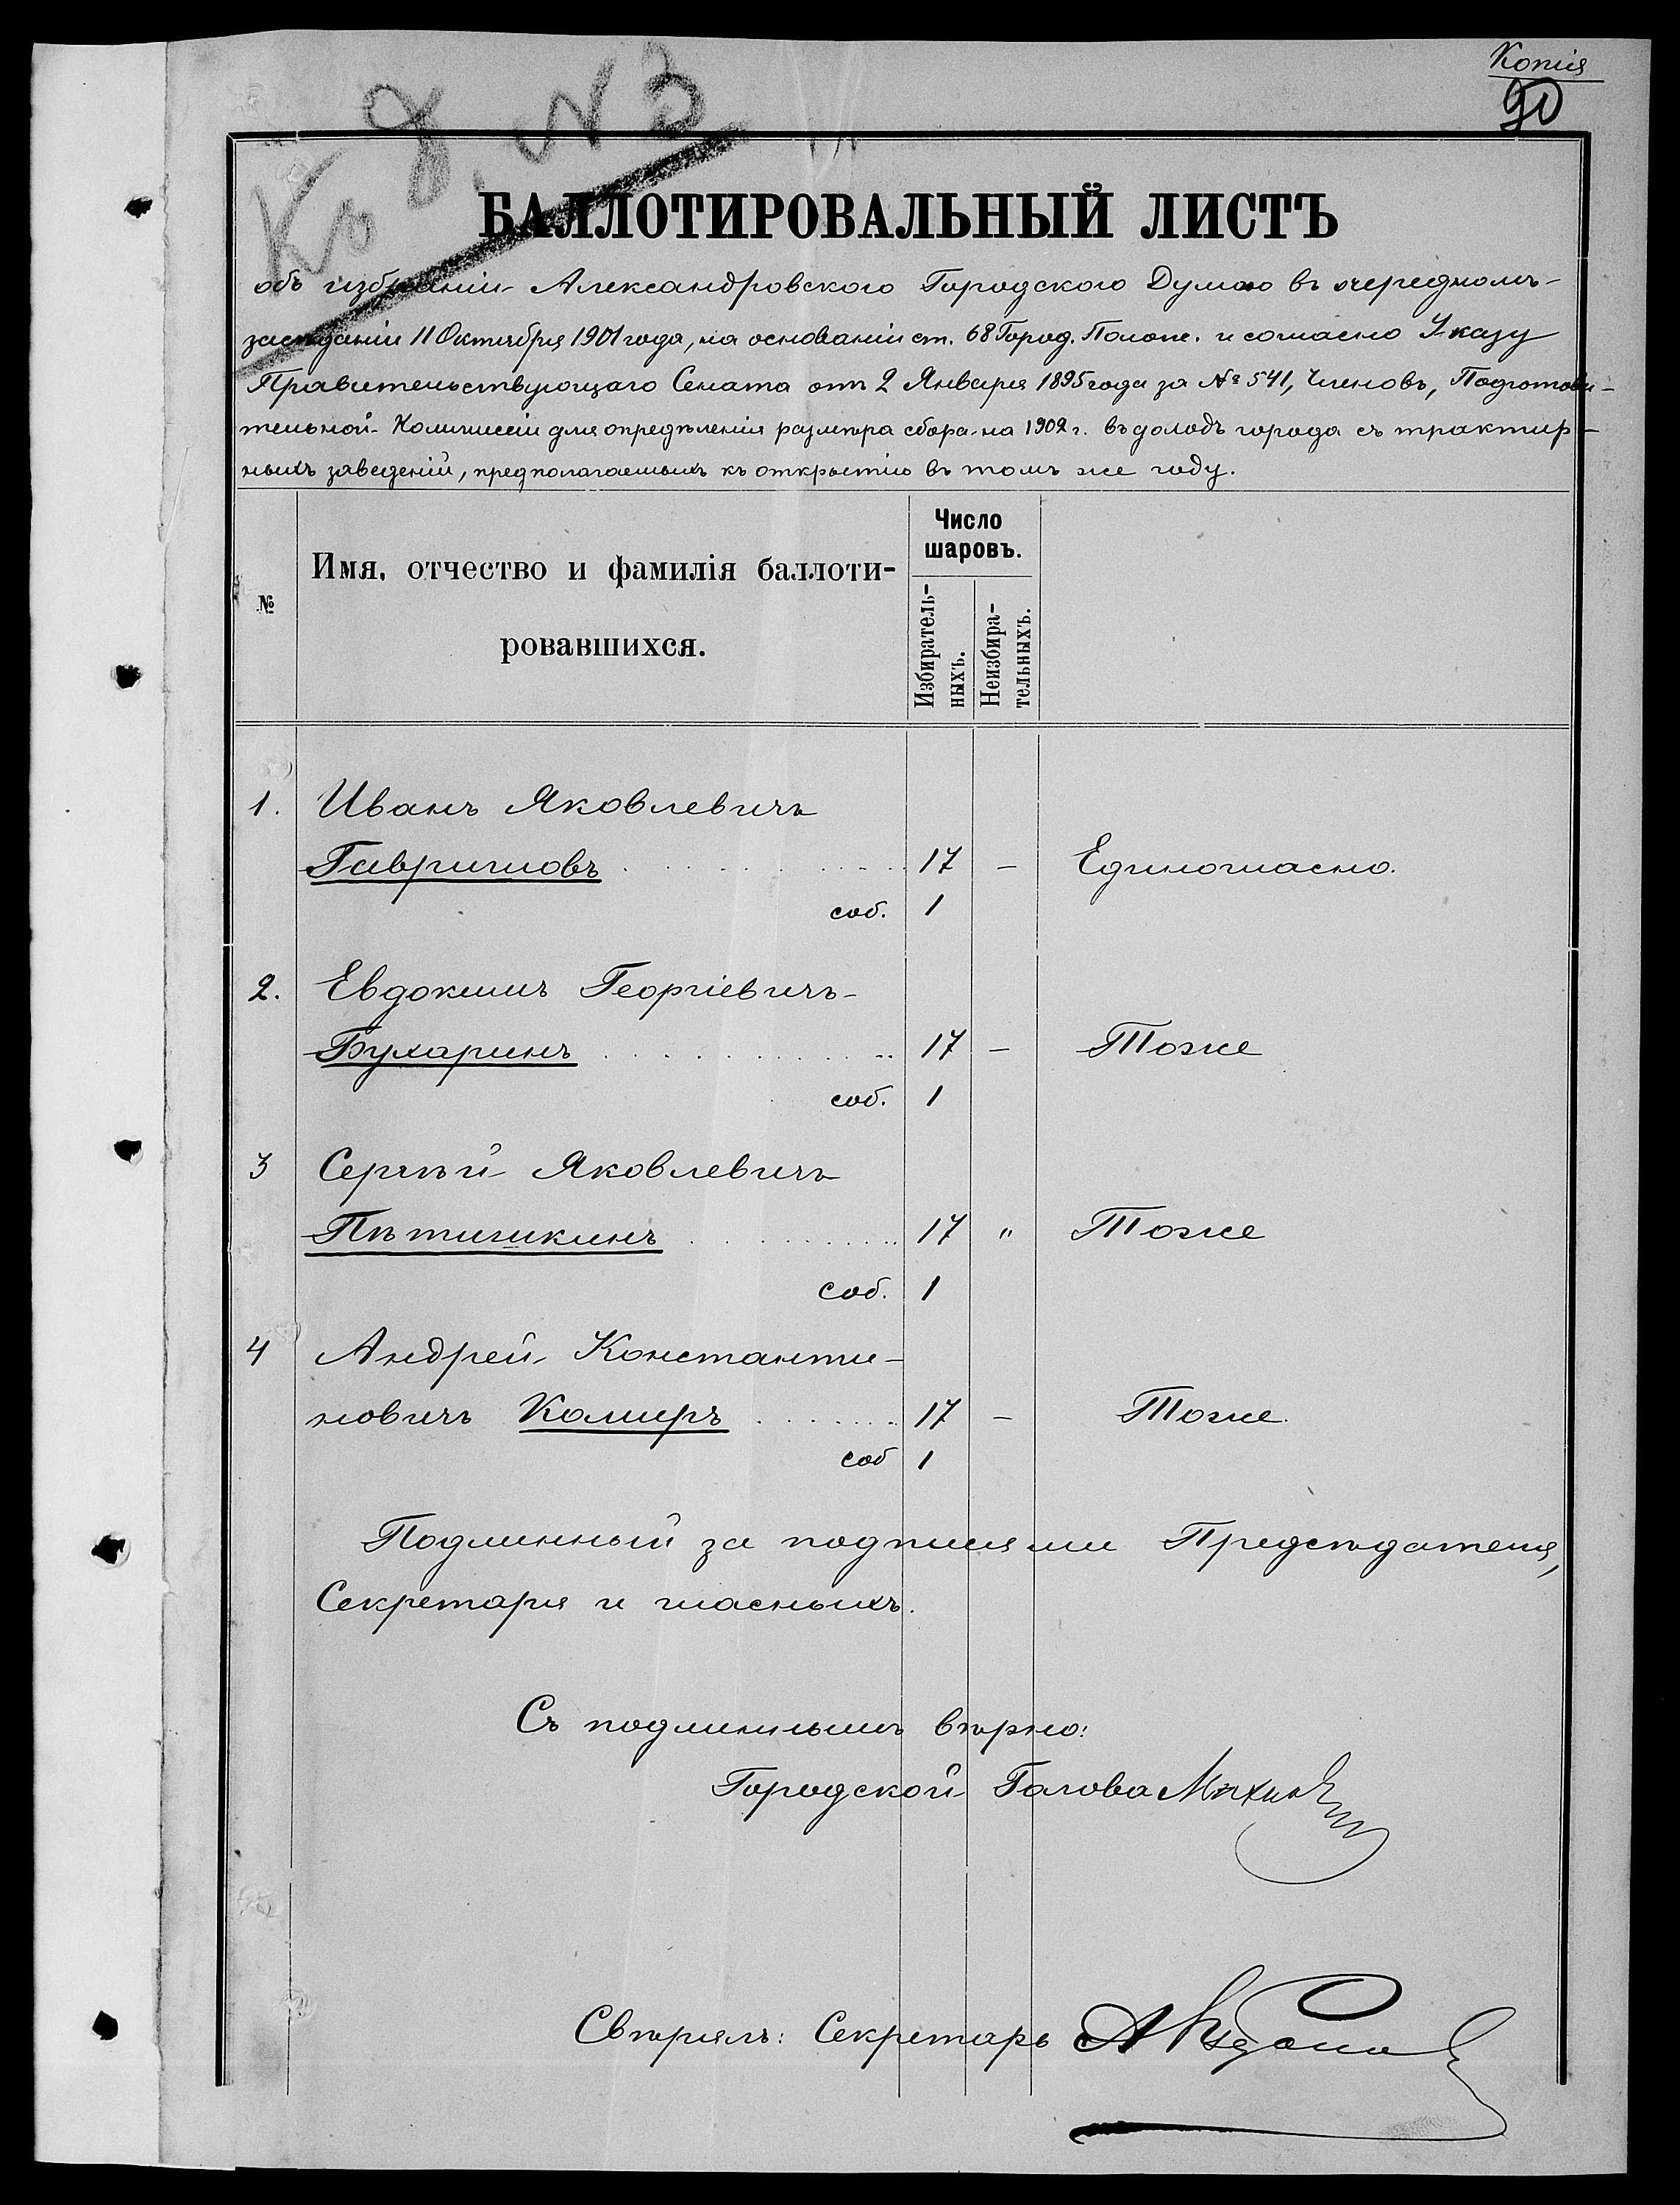 Копія
90
К д. № 3
БАЛЛОТИРОВАЛЬНЫЙ ЛИСТЪ
объ избраніи Александровскою Городскою Думою въ очередномъ
засѣданіи 11 Октября 1901 года, на основаніи ст. 68 Город. Полож. и согласно Указу
Правительствующаго Сената отъ 2 Января 1895 года за № 541, Членовъ, Подготови-
тельной Коммиссіи для опредѣленія размѣра сбора на 1902 г. въ доходъ города съ трактир-
ныхъ заведеній, предполагаемыхъ къ открытію въ томъ же году.
№
Имя, отчество и фамилія баллоти-
ровавшихся.
Число
шаровъ.
Избиратель-
ныхъ.
Неизбира-
тельныхъ.
1. Иванъ Яковлевичъ
Гавриловъ 17 – Единогласно.
соб. 1
2. Евдокимъ Георгіевичъ
Бухаринъ 17 – Тоже
соб. 1
3 Сергѣй Яковлевичъ
Пѣтишкинъ 17 " Тоже
соб. 1
4 Андрей Константи-
новичъ Камиръ 17 – Тоже.
соб 1
Подлинный за подписями Предсѣдателя,
Секретаря и гласныхъ.
Съ подлиннымъ вѣрно:
Городской Голова
Свѣрялъ: Секретарь